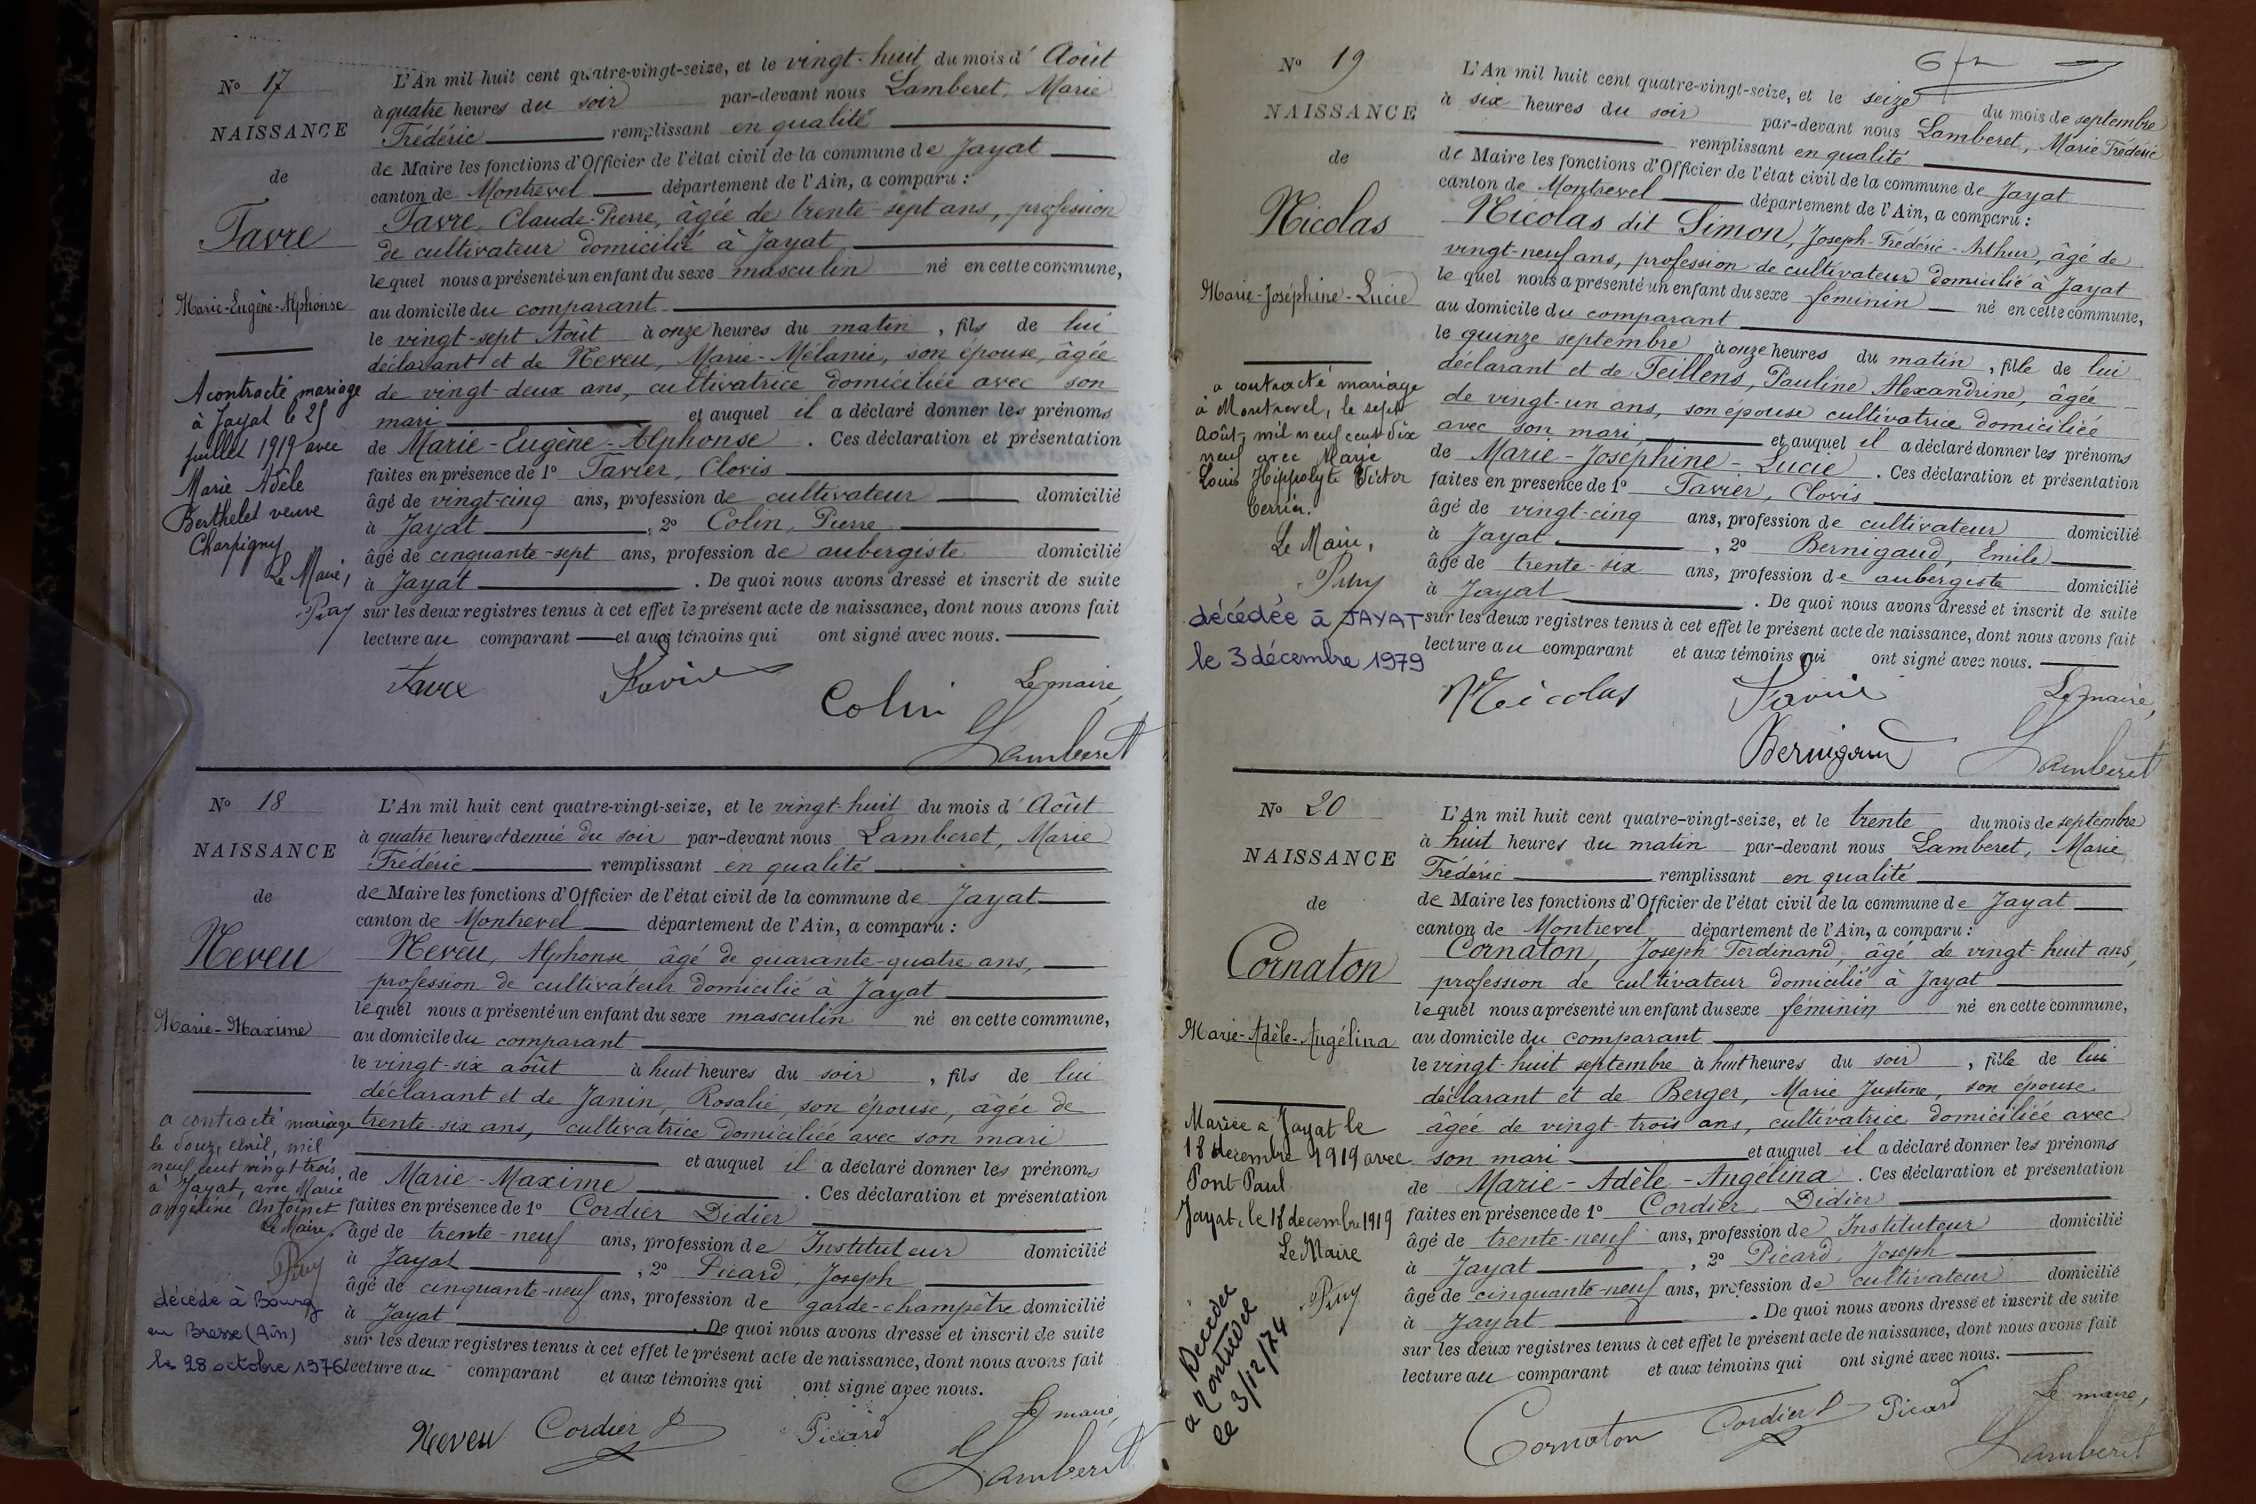 N° 17
NAISSANCE
de
Favre
Marie-Eugène-Alphonse
A contracté mariage
à Jayat le 25
juillet 1919 avec
Marie Adèle
Berthelet veuve
Charpigny
Le Maire,
L'An mil huit cent quatre-vingt-seize, et le vingt-huit du mois d'Août
à quatre heures du soir par-devant nous Lamberet, Marie
Frédéric remplissant en qualité
de Maire les fonctions d'Officier de l'état civil de la commune de Jayat
canton de Montrevel département de l'Ain, a comparu :
Favre, Claude-Pierre, âgée de trente-sept ans, profession
de cultivateur domicilié à Jayat
lequel nous a présenté un enfant du sexe masculin né en cette commune,
au domicile du comparant
le vingt-sept Août à onze heures du matin, fils de lui
déclarant et de Neveu, Marie-Mélanie, son épouse, âgée
de vingt-deux ans, cultivatrice domiciliée avec son
mari et auquel il a déclaré donner les prénoms
de Marie-Eugène-Alphonse. Ces déclaration et présentation
faites en présence de 1° Favier, Clovis
âgé de vingt-cinq ans, profession de cultivateur domicilié
à Jayat, 2° Colin, Pierre
âgé de cinquante-sept ans, profession de aubergiste domicilié
à Jayat. De quoi nous avons dressé et inscrit de suite
sur les deux registres tenus à cet effet le présent acte de naissance, dont nous avons fait
lecture au comparant et aux témoins qui ont signé avec nous.
Favre Favier Colin Le maire,
Lamberet
N° 18
NAISSANCE
de
Neveu
Marie-Maxime
a contracté mariage
le douze avril, mil
neuf cent vingt trois
à Jayat, avec Marie
angéline Antoinet
Le Maire,
décédé à Bourg
en Bresse (Ain)
le 28 octobre 1976
L'An mil huit cent quatre-vingt-seize, et le vingt-huit du mois d'Août
à quatre heures et demie du soir par-devant nous Lamberet, Marie
Frédéric remplissant en qualité
de Maire les fonctions d'Officier de l'état civil de la commune de Jayat
canton de Montrevel département de l'Ain, a comparu :
Neveu, Alphonse âgé de quarante-quatre ans,
profession de cultivateur domicilié à Jayat
lequel nous a présenté un enfant du sexe masculin né en cette commune,
au domicile du comparant
le vingt-six août à huit heures du soir, fils de lui
déclarant et de Janin, Rosalie, son épouse, âgée de
trente-six ans, cultivatrice domiciliée avec son mari
et auquel il a déclaré donner les prénoms
de Marie-Maxime. Ces déclaration et présentation
faites en présence de 1° Cordier Didier
âgé de trente-neuf ans, profession de Instituteur domicilié
à Jayat, 2° Picard, Joseph
âgé de cinquante-neuf ans, profession de garde-champêtre domicilié
à Jayat. De quoi nous avons dressé et inscrit de suite
sur les deux registres tenus à cet effet le présent acte de naissance, dont nous avons fait
lecture au comparant et aux témoins qui ont signé avec nous.
Neveu Cordier D Picard Le maire,
Lamberet
N° 19
NAISSANCE
de
Nicolas
Marie-Joséphine-Lucie
a contracté mariage
à Montrevel, le sept
Août mil neuf cent dix
neuf avec Marie
Louis Hippolyte Victor
Perrin.
Le Maire,
décédée à JAYAT
le 3 décembre 1979
L'An mil huit cent quatre-vingt-seize, et le seize du mois de septembre
à six heures du soir par-devant nous Lamberet, Marie Frédéric
remplissant en qualité
de Maire les fonctions d'Officier de l'état civil de la commune de Jayat
canton de Montrevel département de l'Ain, a comparu :
Nicolas dit Simon, Joseph-Frédéric-Arthur, âgé de
vingt-neuf ans, profession de cultivateur domicilié à Jayat
lequel nous a présenté un enfant du sexe féminin né en cette commune,
au domicile du comparant
le quinze septembre à onze heures du matin, fille de lui
déclarant et de Teillens, Pauline Alexandrine, âgée
de vingt-un ans, son épouse cultivatrice domiciliée
avec son mari, et auquel il a déclaré donner les prénoms
de Marie-Joséphine-Lucie. Ces déclaration et présentation
faites en présence de 1° Favier, Clovis
âgé de vingt-cinq ans, profession de cultivateur domicilié
à Jayat, 2° Bernigaud, Emile
âgé de trente-six ans, profession de aubergiste domicilié
à Jayat. De quoi nous avons dressé et inscrit de suite
sur les deux registres tenus à cet effet le présent acte de naissance, dont nous avons fait
lecture au comparant et aux témoins qui ont signé avec nous.
Nicolas Favier Le maire,
Bernigaud Lamberet
N° 20
NAISSANCE
de
Cornaton
Marie-Adèle-Angélina
Mariée à Jayat le
18 décembre 1919 avec
Pont Paul
Jayat, le 18 décembre 1919
Le Maire
Décédée
le 3/12/74
L'An mil huit cent quatre-vingt-seize, et le trente du mois de septembre
à huit heures du matin par-devant nous Lamberet, Marie
Frédéric remplissant en qualité
de Maire les fonctions d'Officier de l'état civil de la commune de Jayat
canton de Montrevel département de l'Ain, a comparu :
Cornaton, Joseph Ferdinand, âgé de vingt-huit ans,
profession de cultivateur domicilié à Jayat
lequel nous a présenté un enfant du sexe féminin né en cette commune,
au domicile du comparant
le vingt-huit septembre à huit heures du soir, fille de lui
déclarant et de Berger, Marie Justine, son épouse
âgée de vingt-trois ans, cultivatrice domiciliée avec
son mari et auquel il a déclaré donner les prénoms
de Marie-Adèle-Angélina. Ces déclaration et présentation
faites en présence de 1° Cordier, Didier
âgé de trente-neuf ans, profession de Instituteur domicilié
à Jayat, 2° Picard, Joseph
âgé de cinquante-neuf ans, profession de cultivateur domicilié
à Jayat. De quoi nous avons dressé et inscrit de suite
sur les deux registres tenus à cet effet le présent acte de naissance, dont nous avons fait
lecture au comparant et aux témoins qui ont signé avec nous.
Cornaton Cordier D Picard Le maire,
Lamberet